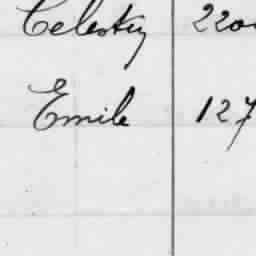 Celestin 220
Emile 127